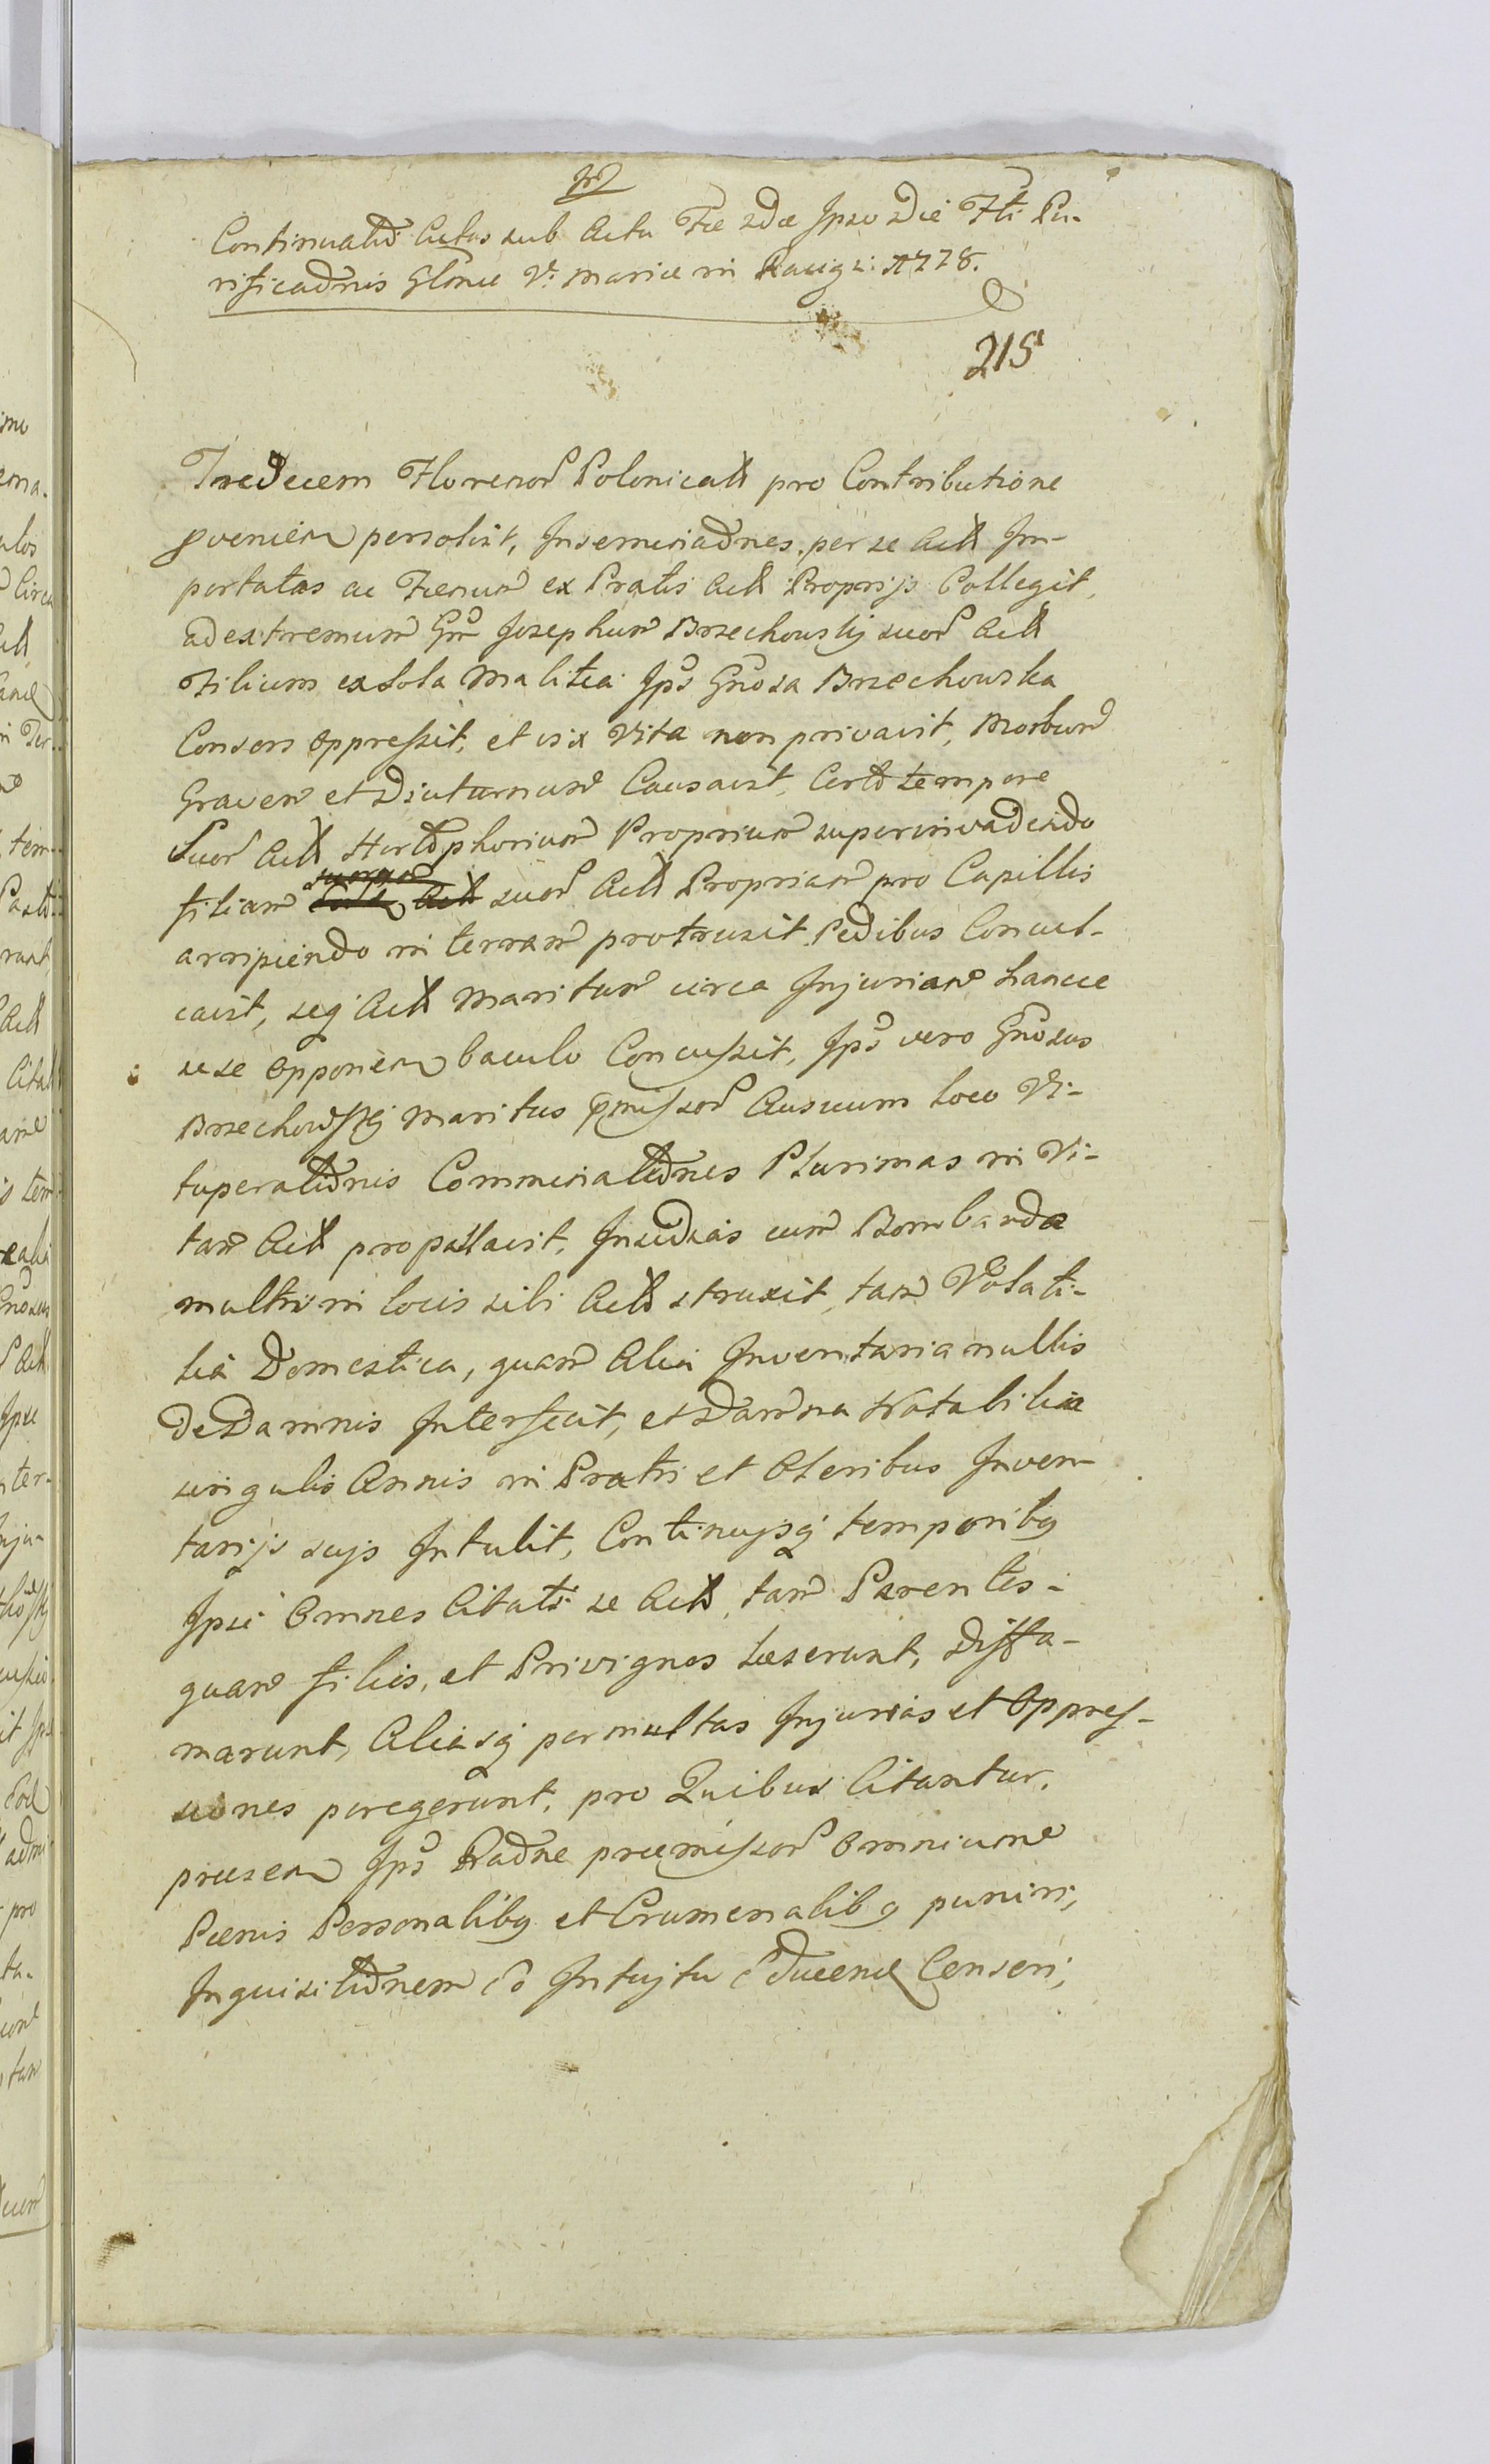 Continuatio Actus sub Actu Fæ 2dæ Ipso Die Fti Pu-
rificaonis Glonæ V. Mariæ in Raÿgr: 1778.
215
Tredecem Florenor Polonicall pro Contributione
pvenien persolvit, Inseminaones per se Actt Im-
portatas ac Fænum ex Pratis Actt Proprijs Collegit,
ad extremum Gm Josephum Brzechowskij suor Actt
Filium ex Sola Malitia Ips Gnosa Brzechowska
Consors oppressit, et vix Vita non privavit, Morbum
Gravem et Diuturnum Causavit, Certo tempore
Suor Actt Horto phorium Proprium superinvadendo
filiam suor Actt Propriam pro Capillis
arripiendo in terram protrusit Pedibus Concul-
cavit, seq Actt Maritum circa Injuriam hancce
sese opponen baculo Concussit, Ips vero Gnosus
Brzechowskij Maritus pmissor Ausuum loco Vi-
tuperationis Comminationes Plurimas in Vi-
tam Actt propallavit, Insidias cum Bombarda
multis in locis sibi Actt struxit, tam Volati-
lia Domestica, quam Alia Inventaria nullis
De Damnis Interfecit, et Damna Notabilia
singulis Annis in Pratis et Oleribus Inven-
tarijs sujs Intulit, Continujsq temporibq
Ipsi Omnes Citati se Actt, tam Parentes
quam filios, et Privignos læserunt, Diffa-
marunt, Aliasq permultas Injurias et Oppres-
siones peregerunt, pro Quibus Citantur,
præsen Ips Raone præmissor Omnium
Pænis Personalibq et Crumenalibq puniri,
Inquisitionem eo Intujtu Educend Censeri,